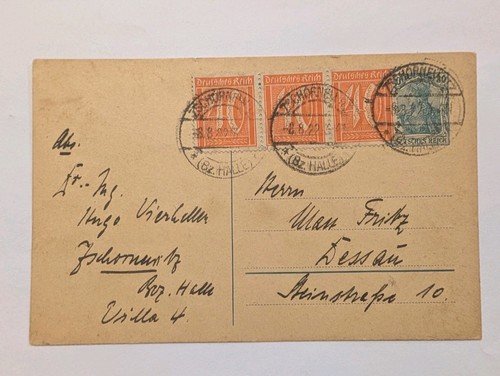 Deutsches Reich Deutsches Reich Deutsches Reich
40 40 40
ZSCHORNEWITZ
-8.8.22
* (BZ. HALLE)
ZSCHORNEWITZ
-8.8.22
* (BZ. HALLE)
ZSCHORNEWITZ
8.8.22
Abs.
Dr.-Ing.
Hugo Vierheller
Zschornewitz
Bez. Halle
Villa 4.
Herrn
Max Fritz
Dessau
Steinstraße 10.